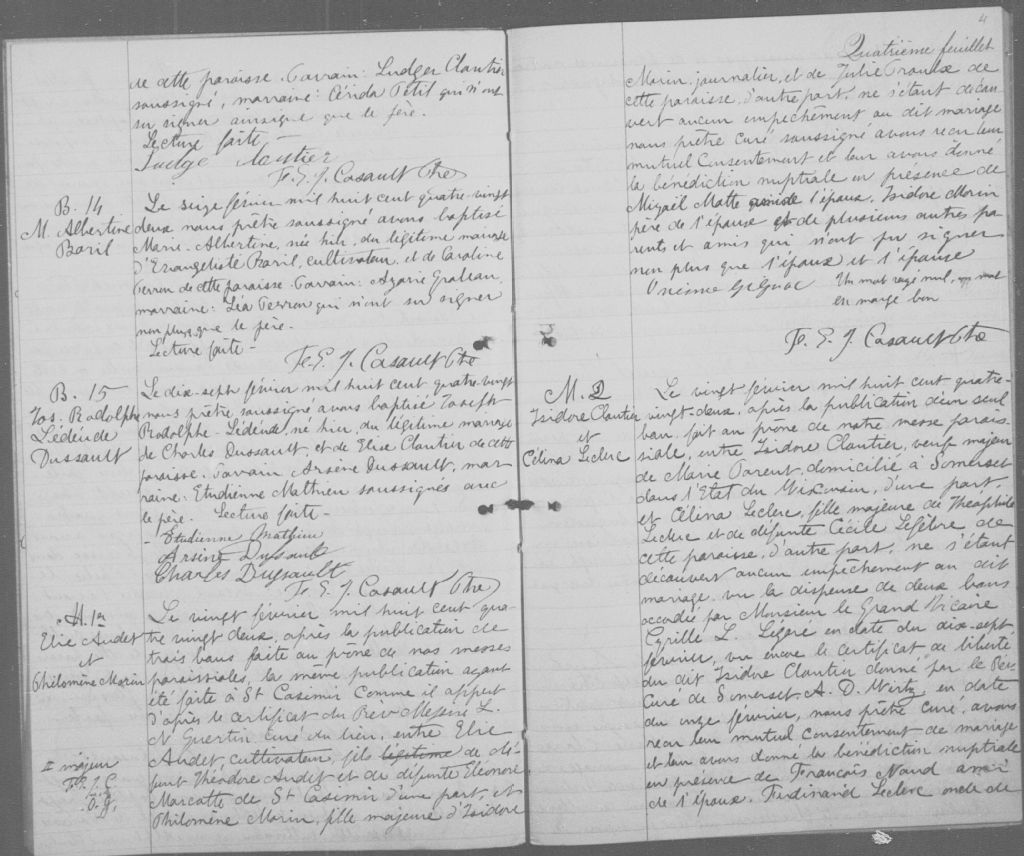 de cette paroisse. Parrain: Ludger Clautier
soussigné, marraine: Cérida Petil qui n'ont
su signer ainsique que le père.
Lecture faite
F. E. J. Casault Ptre
B. 14
M. Albertine
Baril
Le seize février mil huit cent quatre-vingt
deux nous prêtre soussigné avons baptisé
Marie-Albertine, née hier, du légitime mariage
d'Evangeliste Baril, cultivateur, et de Caroline
Perron de cette paroisse. Parrain: Azarie
marraine: Léa Perron qui n'ont su signer
non plus que le père.
Lecture faite -
F. E. J. Casault Ptre
B. 15
Jos. Rodolphe
Lédéinde
Dussault
Le dix-sept février mil huit cent quatre-vingt
nous prêtre soussigné avons baptisé Joseph
Rodolphe - né hier, du légitime mariage
de Charles Dussault, et de Elise Clautier de cette
paroisse. Parrain Arsène Dussault, mar-
raine: Etudienne Mathieu soussignés avec
le père. Lecture faite -
- Etudienne Mathieu
Arsène Dussault
Charles Dussault
F. E. J. Casault Ptre
M. 1er
Elie Audet
et
Philomène Morin
Le vingt février mil huit cent qua-
tre vingt deux, après la publication de
trois bans faite au prône de nos messes
paroissiales, la même publication ayant
été faite à St Casimir comme il appert
d'après le certificat du Rév Messire L.
N Guertin curé du lieu, entre Elie
Audet, cultivateur, fils légitime de dé-
funt Théodore Audet et de défunte Eléonore
Marcotte de St Casimir d'une part, et
Philomène Morin, fille majeure d'Isidore
majeur
F. E. J. C.
O. G.
4
Quatrième feuillet
Morin, journalier, et de Julie Proulx de
cette paroisse, d'autre part, ne s'étant décou-
vert aucun empêchement au dit mariage
nous prêtre curé soussigné avons reçu leur
mutuel consentement et leur avons donné
la bénédiction nuptiale en présence de
Mizaël Matte amide l'époux, Isidore Morin
père de l'épouse et de plusieurs autres pa-
rents et amis qui n'ont pu signer
non plus que l'époux et l'épouse
Onésime Un mot rayé nul, un mot
en marge bon
F. E. J. Casault Ptre
M. 2
Isidore Clautier
et
Célina Leclerc
Le vingt février mil huit cent quatre-
vingt-deux, après la publication d'un seul
ban, fait au prône de notre messe parois-
siale, entre Isidore Clautier, veuf majeur
de Marie Parent, domicilié à Somerset
dans l'Etat du Wisconsin, d'une part,
et Célina Leclerc, fille majeure de Théophile
Leclerc et de défunte Cécile Lefèbre de
cette paroisse, d'autre part, ne s'étant
découvert aucun empêchement au dit
mariage. vu la dispense de deux bans
accordée par Monsieur le Grand Vicaire
Cyrille L. Légaré en date du dix-sept
février, vu encore le certificat de liberté
du dit Isidore Clautier donné par le Rév.
Curé de Somerset A. D. Wirtz, en date
du onze février, nous prêtre curé, avons
reçu leur mutuel consentement de mariage
et leur avons donné la bénédiction nuptiale
en présence de François Naud ami
de l'époux. Ferdinand Leclerc oncle de